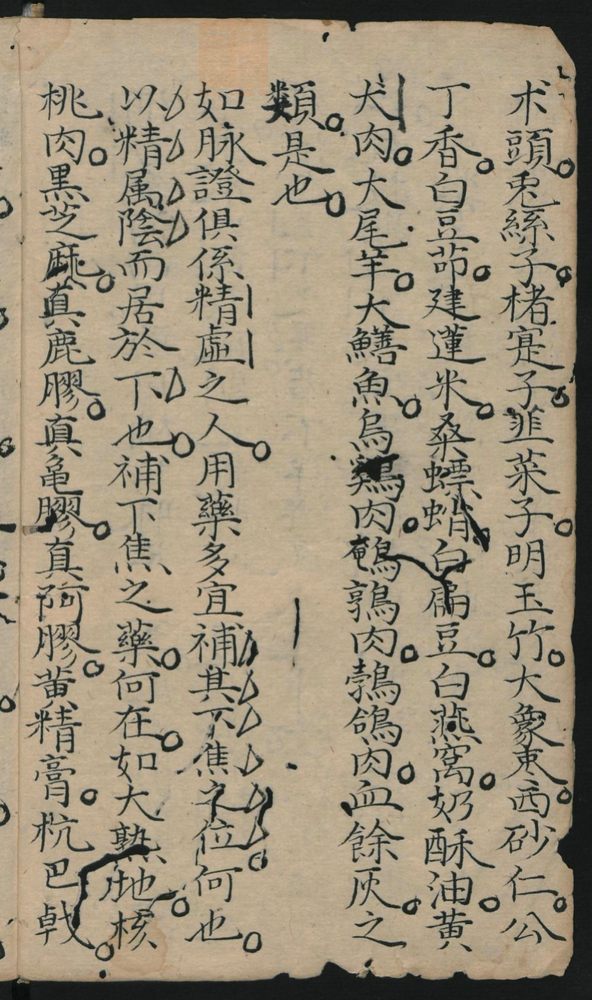 朮頭兎絲子楮寔子韮菜子明玉竹大象枣西砂仁公
丁香白豆茆建蓮米桑螵蛸白扁豆白燕窩奶酥油黄
犬肉大尾羊大鱔魚烏鷄肉鵪鶉肉鵓鴿肉血餘灰之
類是也
如脉證俱係精虛之人用藥多宜補其下焦之位何也
以精属陰而居於下也補下焦之藥何在如大熟地核
桃肉黒芝蔴真鹿膠真亀膠真阿膠黄精膏杭巴戟